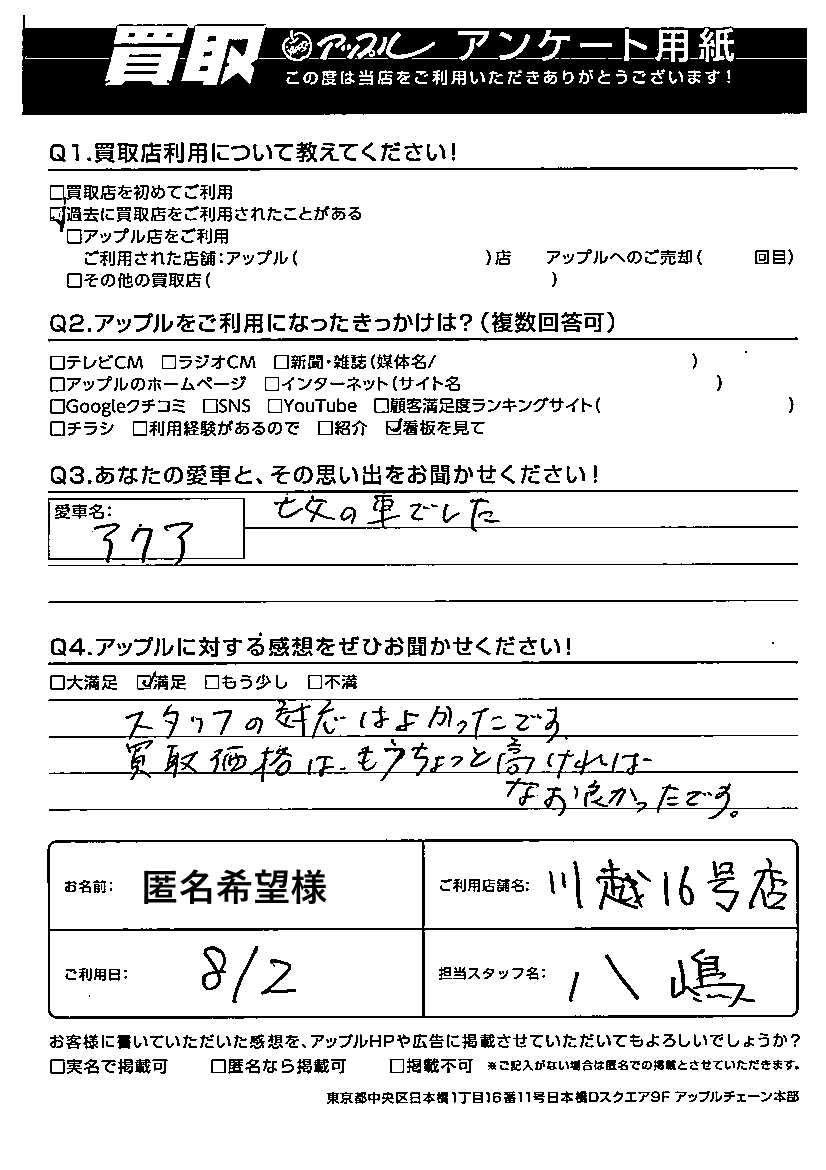 買取 アップル アンケート用紙
この度は当店をご利用いただきありがとうございます!
Q1.買取店利用について教えてください!
□買取店を初めてご利用
☑過去に買取店をご利用されたことがある
□アップル店をご利用
ご利用された店舗:アップル( )店 アップルへのご売却( 回目)
□その他の買取店( )
Q2.アップルをご利用になったきっかけは?(複数回答可)
□テレビCM □ラジオCM □新聞・雑誌(媒体名/ )
□アップルのホームページ □インターネット(サイト名 )
□Googleクチコミ □SNS □YouTube □顧客満足度ランキングサイト( )
□チラシ □利用経験があるので □紹介 ☑看板を見て
Q3.あなたの愛車と、その思い出をお聞かせください!
愛車名: アクア
の車でした
Q4.アップルに対する感想をぜひお聞かせください!
□大満足 ☑満足 □もう少し □不満
スタッフの対応はよかったです
買取価格は、もうちょっと高ければ
なお良かったです。
お名前: 匿名希望様 ご利用店舗名: 川越16号店
ご利用日: 8/2 担当スタッフ名: 八嶋
お客様に書いていただいた感想を、アップルHPや広告に掲載させていただいてもよろしいでしょうか?
□実名で掲載可 □匿名なら掲載可 □掲載不可 ※ご記入がない場合は匿名での掲載とさせていただきます。
東京都中央区日本橋1丁目16番11号日本橋Dスクエア9F アップルチェーン本部